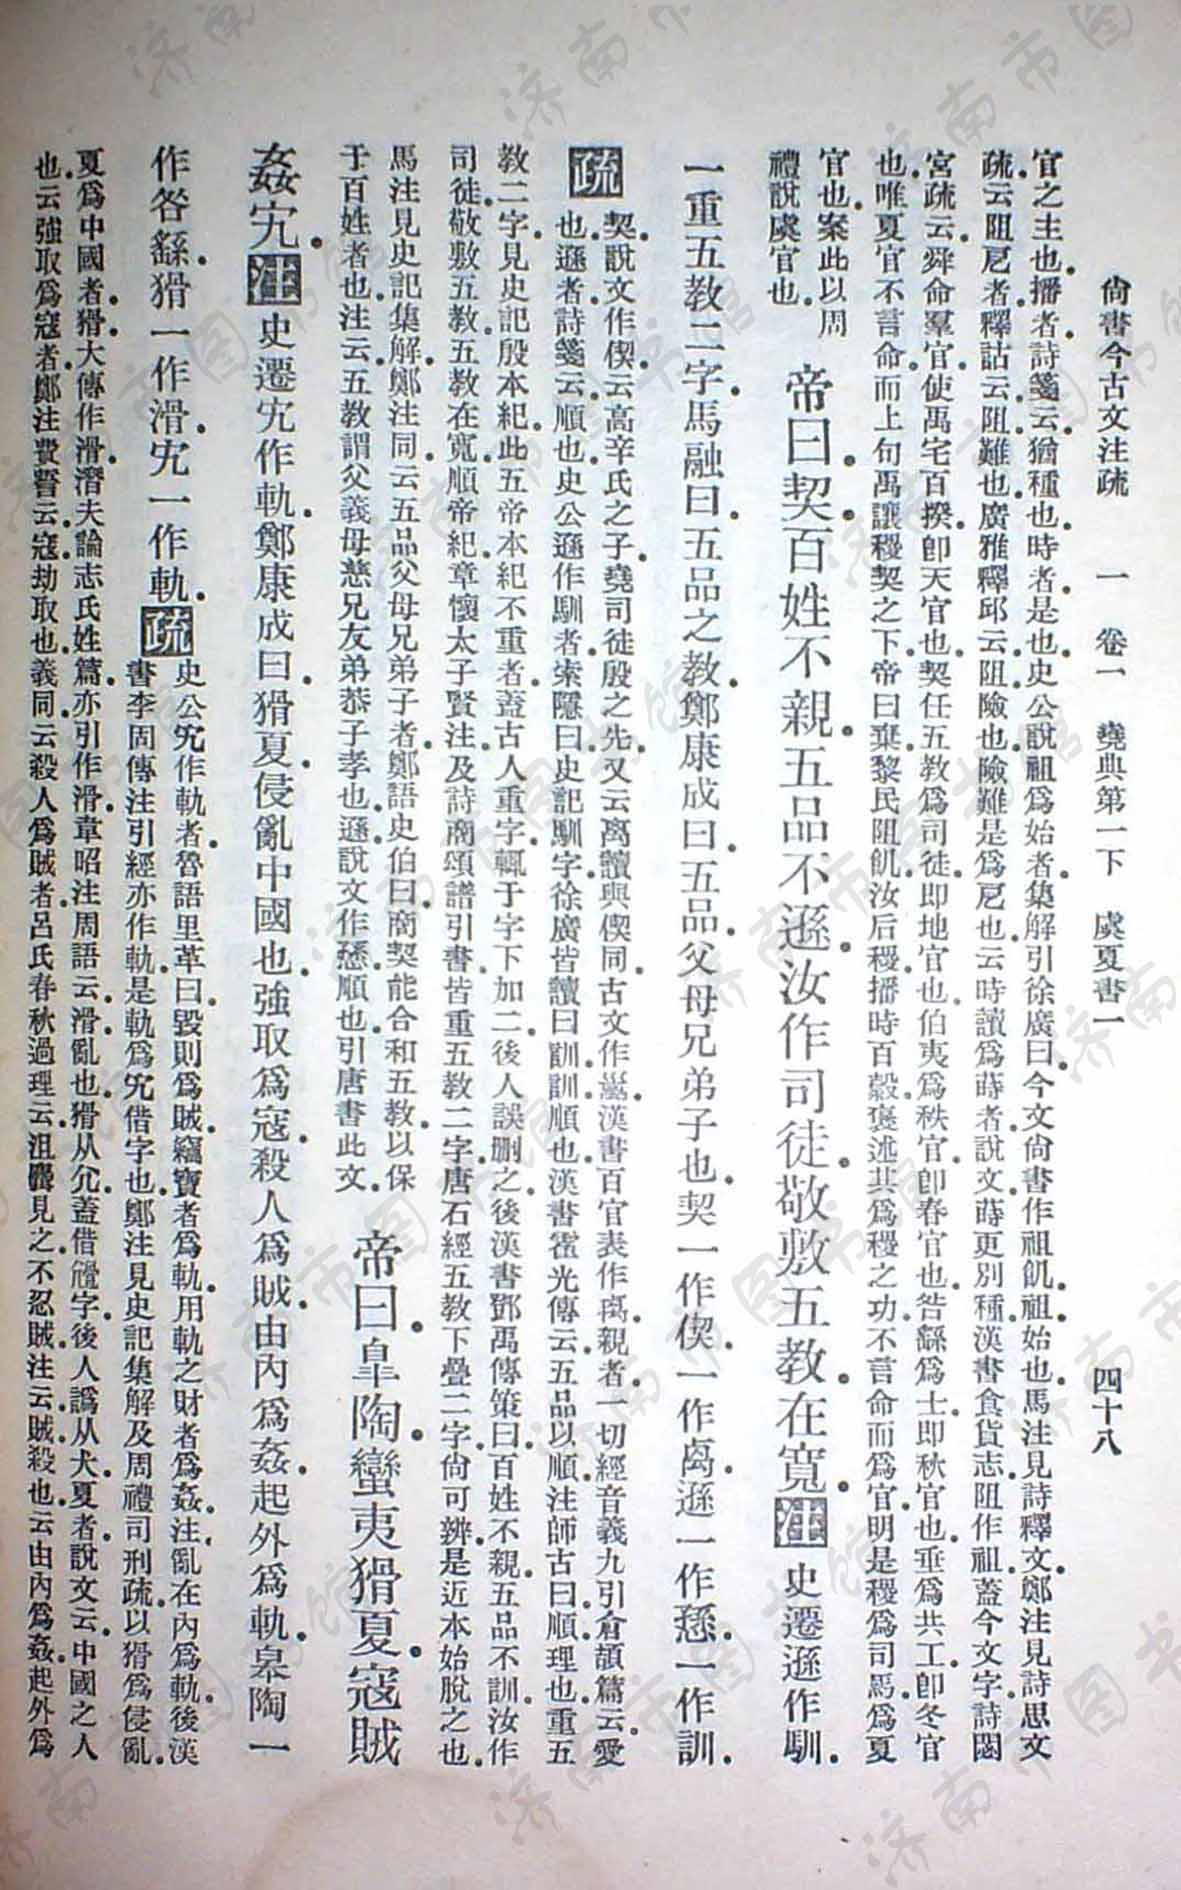 尙書今古文注疏　一　卷一　堯典第一下　虞夏書一　四十八
官之主也。播者。詩箋云。猶種也。時者。是也。史公說祖爲始者。集解引徐廣曰。今文尙書作祖飢。祖。始也。馬注見詩釋文。鄭注見詩思文
疏。云阻戹者。釋詁云。阻。難也。廣雅釋邱云。阻。險也。險難是爲戹也。云時讀爲蒔者。說文。蒔。更別種。漢書食貨志。阻作祖。蓋今文字。詩閟
宮疏云。舜命羣官。使禹宅百揆。卽天官也。契任五教爲司徒。卽地官也。伯夷爲秩宗。卽春官也。咎繇爲士。卽秋官也。垂爲共工。卽冬官
也。唯夏官不言命。而上句禹讓稷契之下。帝曰。棄。黎民阻飢。汝后稷。播時百穀。襃述其爲稷之功。不言命而爲官。明是稷爲司馬。爲夏
官也。案此以周
禮說虞官也。
帝曰。契。百姓不親。五品不遜。汝作司徒。敬敷五教。在寬。注 史遷遜作馴。
一重五教二字。馬融曰。五品之教。鄭康成曰。五品。父母兄弟子也。契一作偰。一作卨。遜一作愻。一作訓。
疏 契。說文作偰。云。高辛氏之子。堯司徒。殷之先。又云。离讀與偰同。古文作𥜻。漢書百官表作卨。親者。一切經音義九引倉頡篇云。愛
也。遜者。詩箋云。順也。史公遜作馴者。索隱曰。史記馴字。徐廣皆讀曰訓。訓。順也。漢書霍光傳云。五品以順。注。師古曰。順。理也。重五
教二字。見史記殷本紀。此五帝本紀不重者。蓋古人重字。輒于字下加二。後人誤刪之。後漢書鄧禹傳策曰。百姓不親。五品不訓。汝作
司徒。敬敷五教。五教在寬。順帝紀章懷太子賢注。及詩商頌譜引書。皆重五教二字。唐石經五教下疊二字。尙可辨。是近本始脫之也。
馬注見史記集解。鄭注同。云五品父母兄弟子者。鄭語史伯曰。商契能合和五教。以保
于百姓者也。注云。五教謂父義母慈兄友弟恭子孝也。遜。說文作愻。順也。引唐書此文。
帝曰。皐陶。蠻夷猾夏。寇賊
姦宄。注 史遷宄作軌。鄭康成曰。猾夏。侵亂中國也。強取爲寇。殺人爲賊。由內爲姦。起外爲軌。皐陶一
作咎繇。猾一作滑。宄一作軌。
疏 史公宄作軌者。魯語里革曰。毀則爲賊。竊寶者爲軌。用軌之財者爲姦。注。亂在內爲軌。後漢
書李固傳注引經亦作軌。是軌爲宄借字也。鄭注見史記集解及周禮司刑疏。以猾爲侵亂。
夏爲中國者。猾。大傳作滑。潛夫論志氏姓篇亦引作滑。韋昭注周語云。滑。亂也。猾从犬。蓋借滑字。後人譌从犬。夏者。說文云。中國之人
也。云強取爲寇者。鄭注費誓云。寇。劫取也。義同。云殺人爲賊者。呂氏春秋過理云。沮麛見之。不忍賊。注云。賊。殺也。云由內爲姦。起外爲